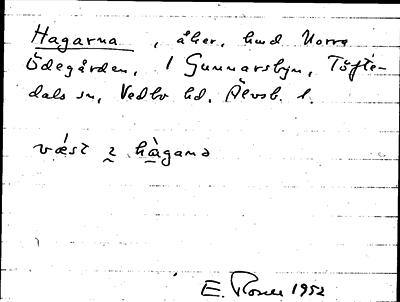 Hagarna, åker, hmd Norra
Ödegården, 1 Gunnarsbyn, Töfte-
dals sn, Vedbo hd, Älvsb. l.
væst 2 hàgana
E. Rosell 1952